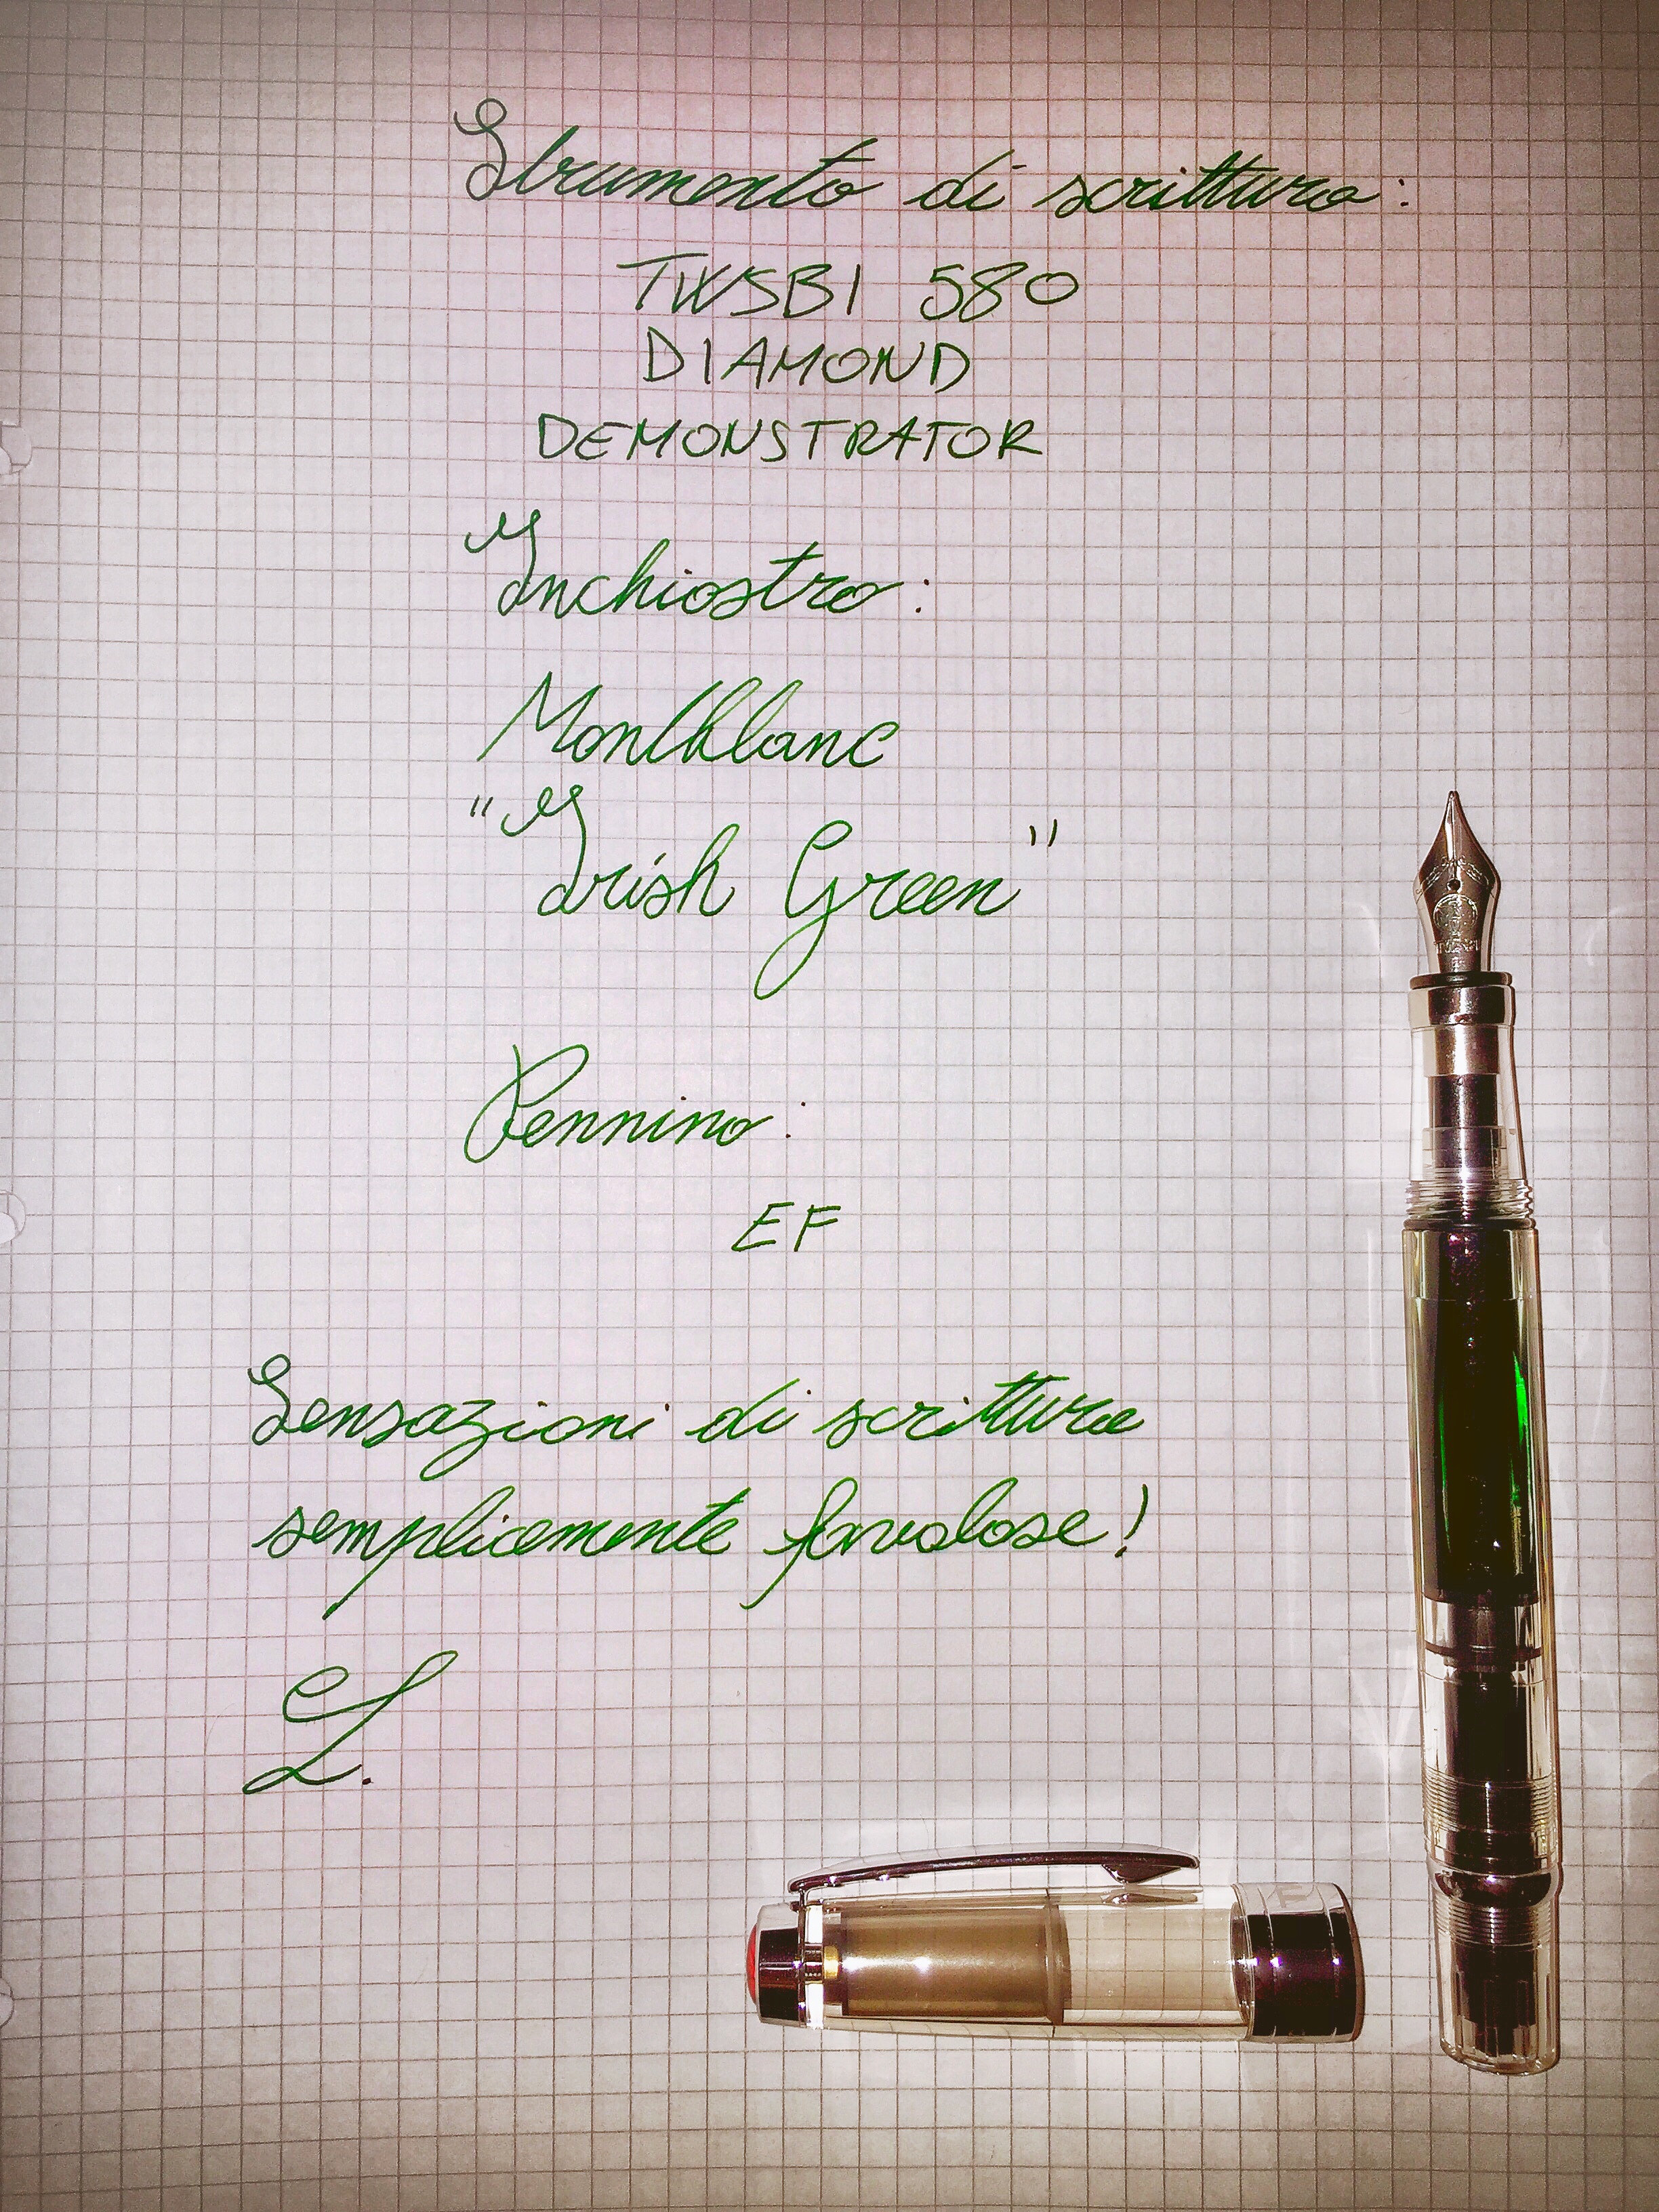 Strumento di scrittura:
TWSBI 580
DIAMOND
DEMONSTRATOR
Inchiostro:
Montblanc
"Irish Green"
Pennino:
EF
Sensazioni di scrittura
semplicemente favolose!
L.